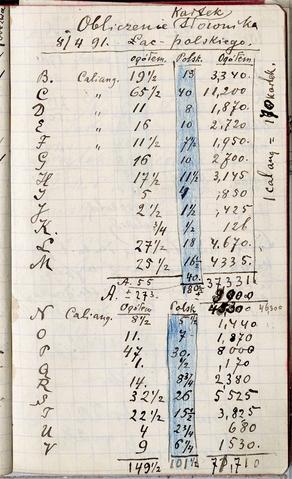 Kartek
Obliczenie Słownika
8/4 91. Łac-polskiego.
ogółem. Polsk. Ogółem.
B. Caliang. 19½ 13 3,340.
C " 65½ 40 11,200
D " 11 8 1,870.
E " 16 10 2,720
F " 11½ 7½ 1,950.
G 16 10 2,700.
H 17½ 11½ 3,145
I 5 4 ,850
J 2½ 1½ ,425
K. ¾ ½ 126
L 27½ 18 4.670.
M 25½ 16½ 4335.
A. 55 40. 37331
A. ± 273. 180½ 9000
N Caliang. Ogółem 8½ Polsk. 5½ 1,440
O 11. 7 1,870
P 47 30. 8000
Q 1. ½ ,170
R 14. 8¾ 2380
S 32½ 26 5525
T 22½ 15½ 3,825
U 4 2¾ 680
V 9 6¼ 1530.
149½ 101½
1 calang = 170 kartek.